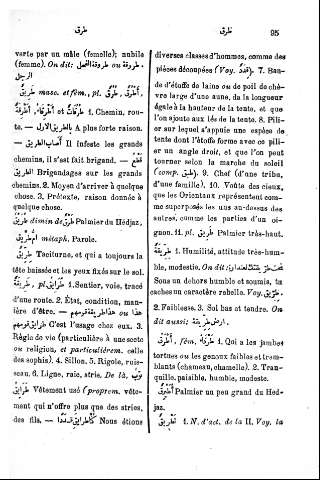 طرق
طرق
95
verte par un mâle (femelle); nubile
(femme). On dit: طروقة ou طروقة الفحل
الرجل.
طَرِيقٌ masc. et fém., pl. طُرُقٌ, أَطْرُقٌ,
طُرُقَاتٌ et أَطْرِقَةٌ, أَطْرِقَاءُ 1. Chemin, rou-
te. — بالطريق الأولى A plus forte raison.
— أصاب الطريق Il Infeste les grands
chemins, il s'est fait brigand. — قطع
الطريق Brigandages sur les grands
chemins. 2. Moyen d'arriver à quelque
chose. 3. Prétexte, raison donnée à
quelque chose.
طُرَيْقٌ dimin de طريق Palmier du Hédjaz.
أمّ طُرَّيْقٍ métaph. Parole.
طِرِّيقٌ Taciturne, et qui a toujours la
tête baissée et les yeux fixés sur le sol.
طَرِيقَةٌ, pl. طَرَايِقُ 1. Sentier, voie, tracé
d'une route. 2. État, condition, ma-
nière d'être. —
C'est l'usage chez eux. 3.
Règle de vie (particulière à une secte
ou religion, et particulièrem. celle
des sophis). 4. Sillon. 5. Rigole, ruis-
seau. 6. Ligne, raie, strie. De là, ثوب
طَرَايِق Vêtement usé (proprem. vête-
ment qui n'offre plus que des stries,
des fils. — كنّا طرايق قددا Nous étions
diverses classes d'hommes, comme des
pièces découpées (Voy. قدّة). 7. Ban-
de d'étoffe de laine ou de poil de chè-
vre large d'une aune, de la longueur
égale à la hauteur de la tente, et que
l'on ajoute aux lés de la tente. 8. Pili-
er sur lequel s'appuie une espèce de
tente dont l'étoffe forme avec ce pili-
er un angle droit, et que l'on peut
tourner selon la marche du soleil
(comp. طبق). 9. Chef (d'une tribu,
d'une famille). 10. Voûte des cieux,
que les Orientaux représentent com-
me superposés les uns au-dessus des
autres, comme les parties d'un oi-
gnon. 11. pl. طريق Palmier très-haut.
طِرِّيقَةٌ 1. Humilité, attitude très-hum-
ble, modestie. On dit:
Sous un dehors humble et soumis, tu
caches un caractère rebelle. Voy.
2. Faiblesse. 3. Sol bas et tendre. On
dit aussi: ارض طريقة.
أَطْرَقُ, fém. طَرْقَاءُ 1. Qui a les jambes
tortues ou les genoux faibles et trem-
blants (chameau, chamelle). 2. Tran-
quille, paisible, humble, modeste.
أُطَيْرِقٌ Palmier un peu grand du Hed-
jaz.
تَطْرِيقٌ 1. N. d'act. de la II. Voy. la